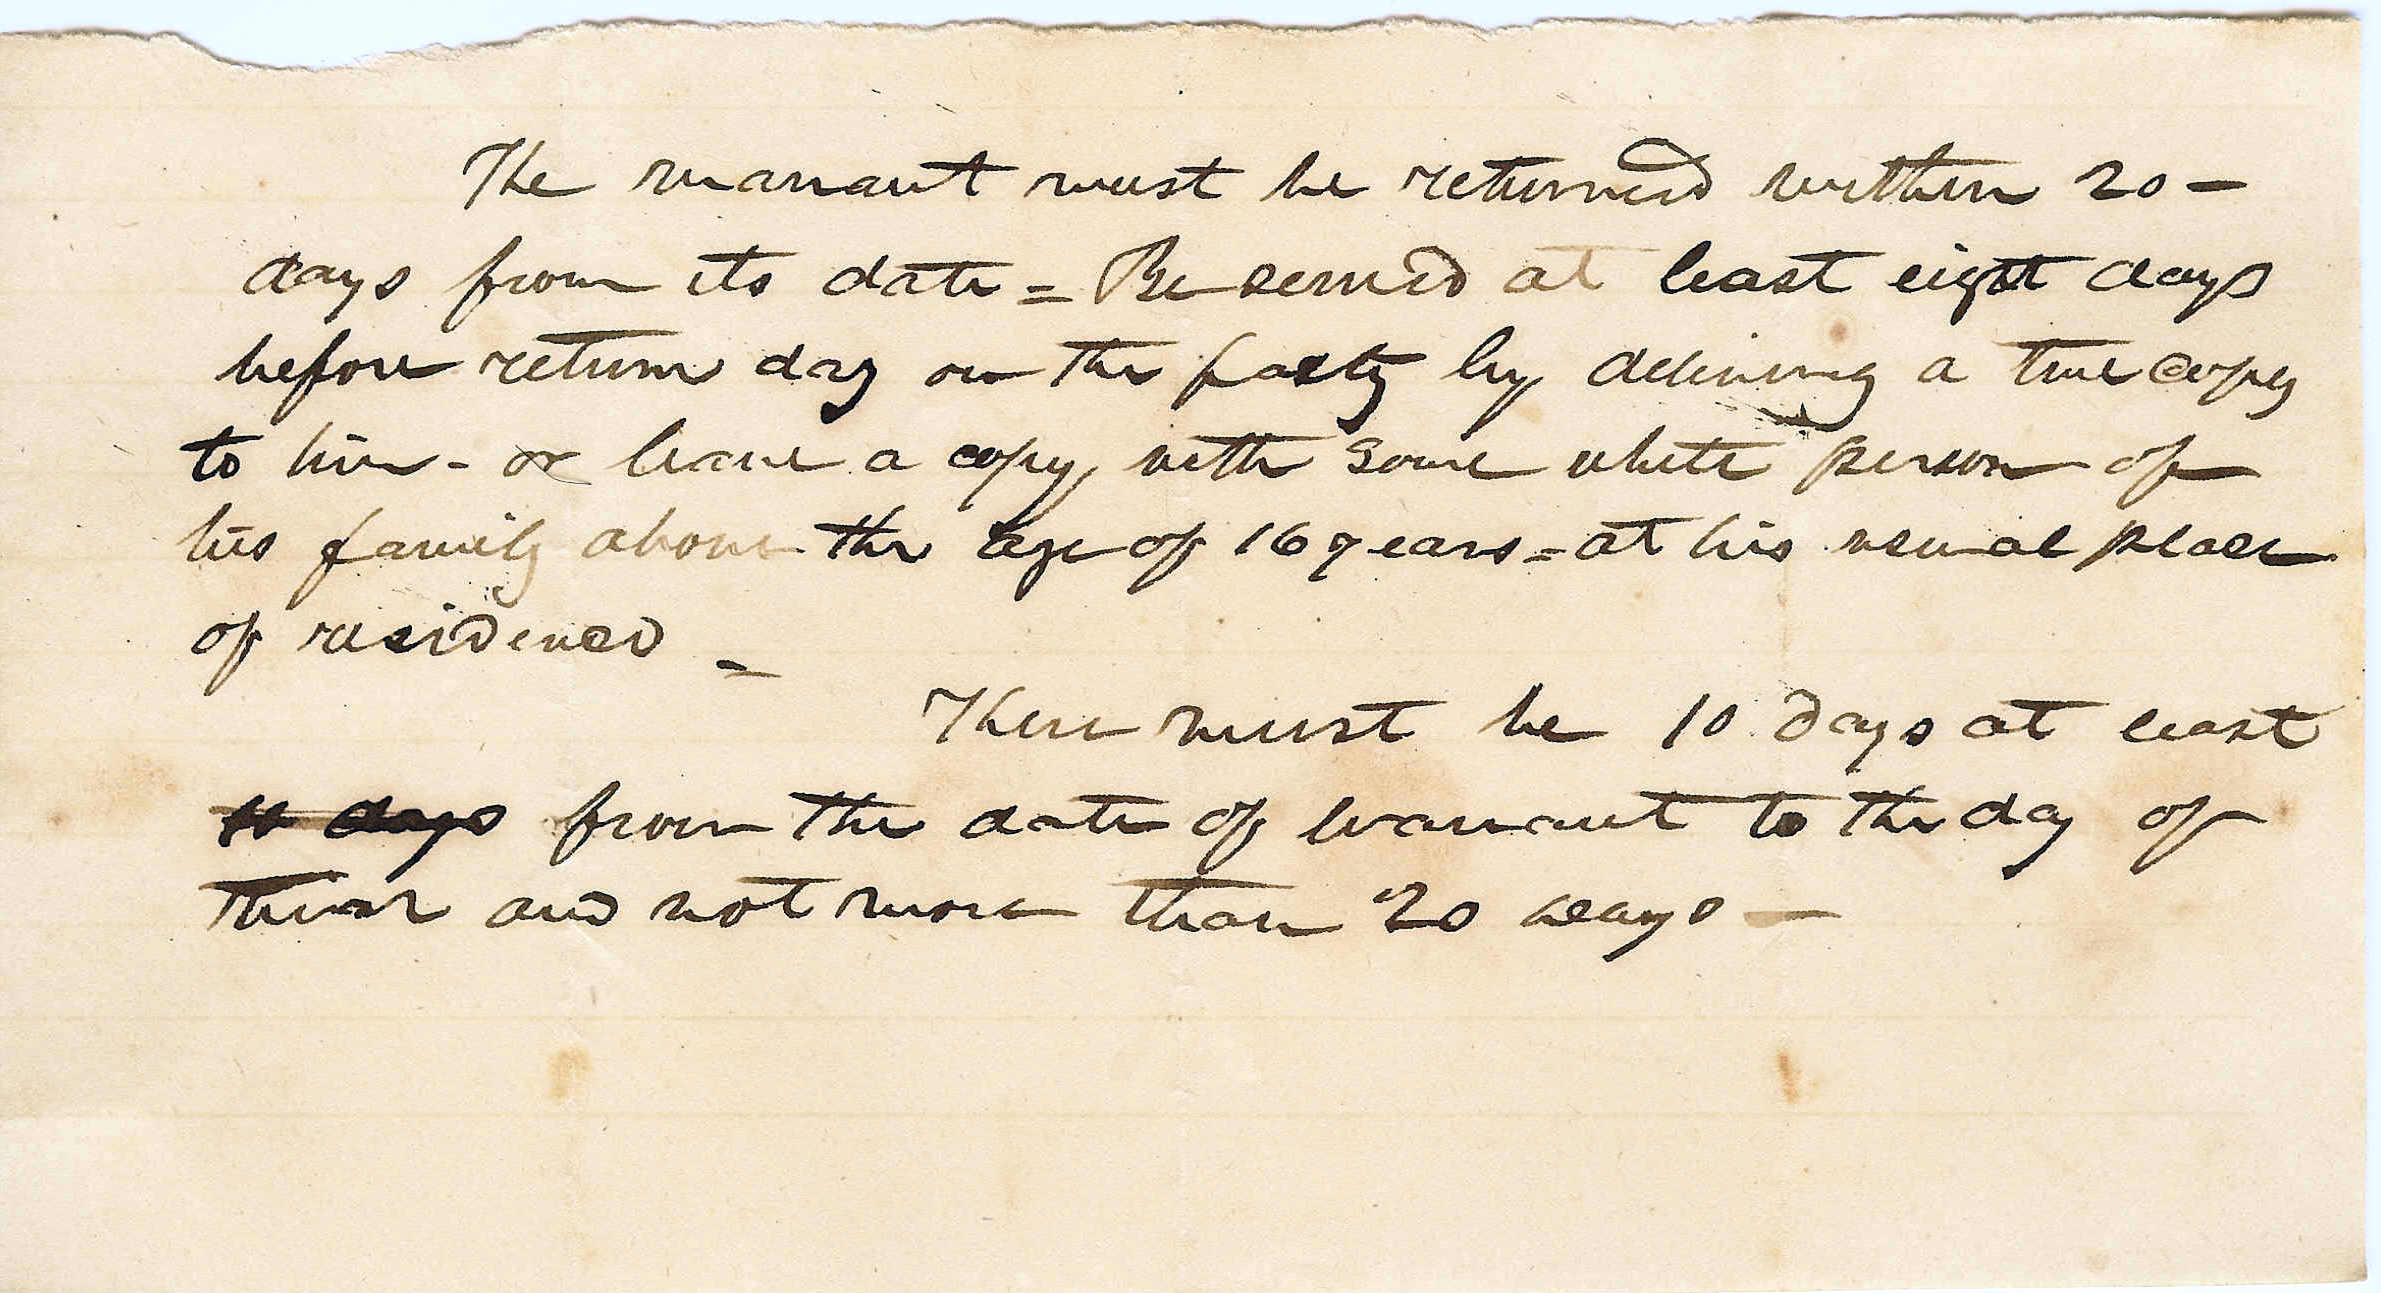 The warrant must be returned within 20 -
days from its date = Be served at least eight days
before return day on the party by delivering a true copy
to him - or leave a copy, with some white person of
his family above the age of 16 years = at his usual place
of residence =
There must be 10 days at least
10 days from the date of warrant to the day of
and not more than 20 days -